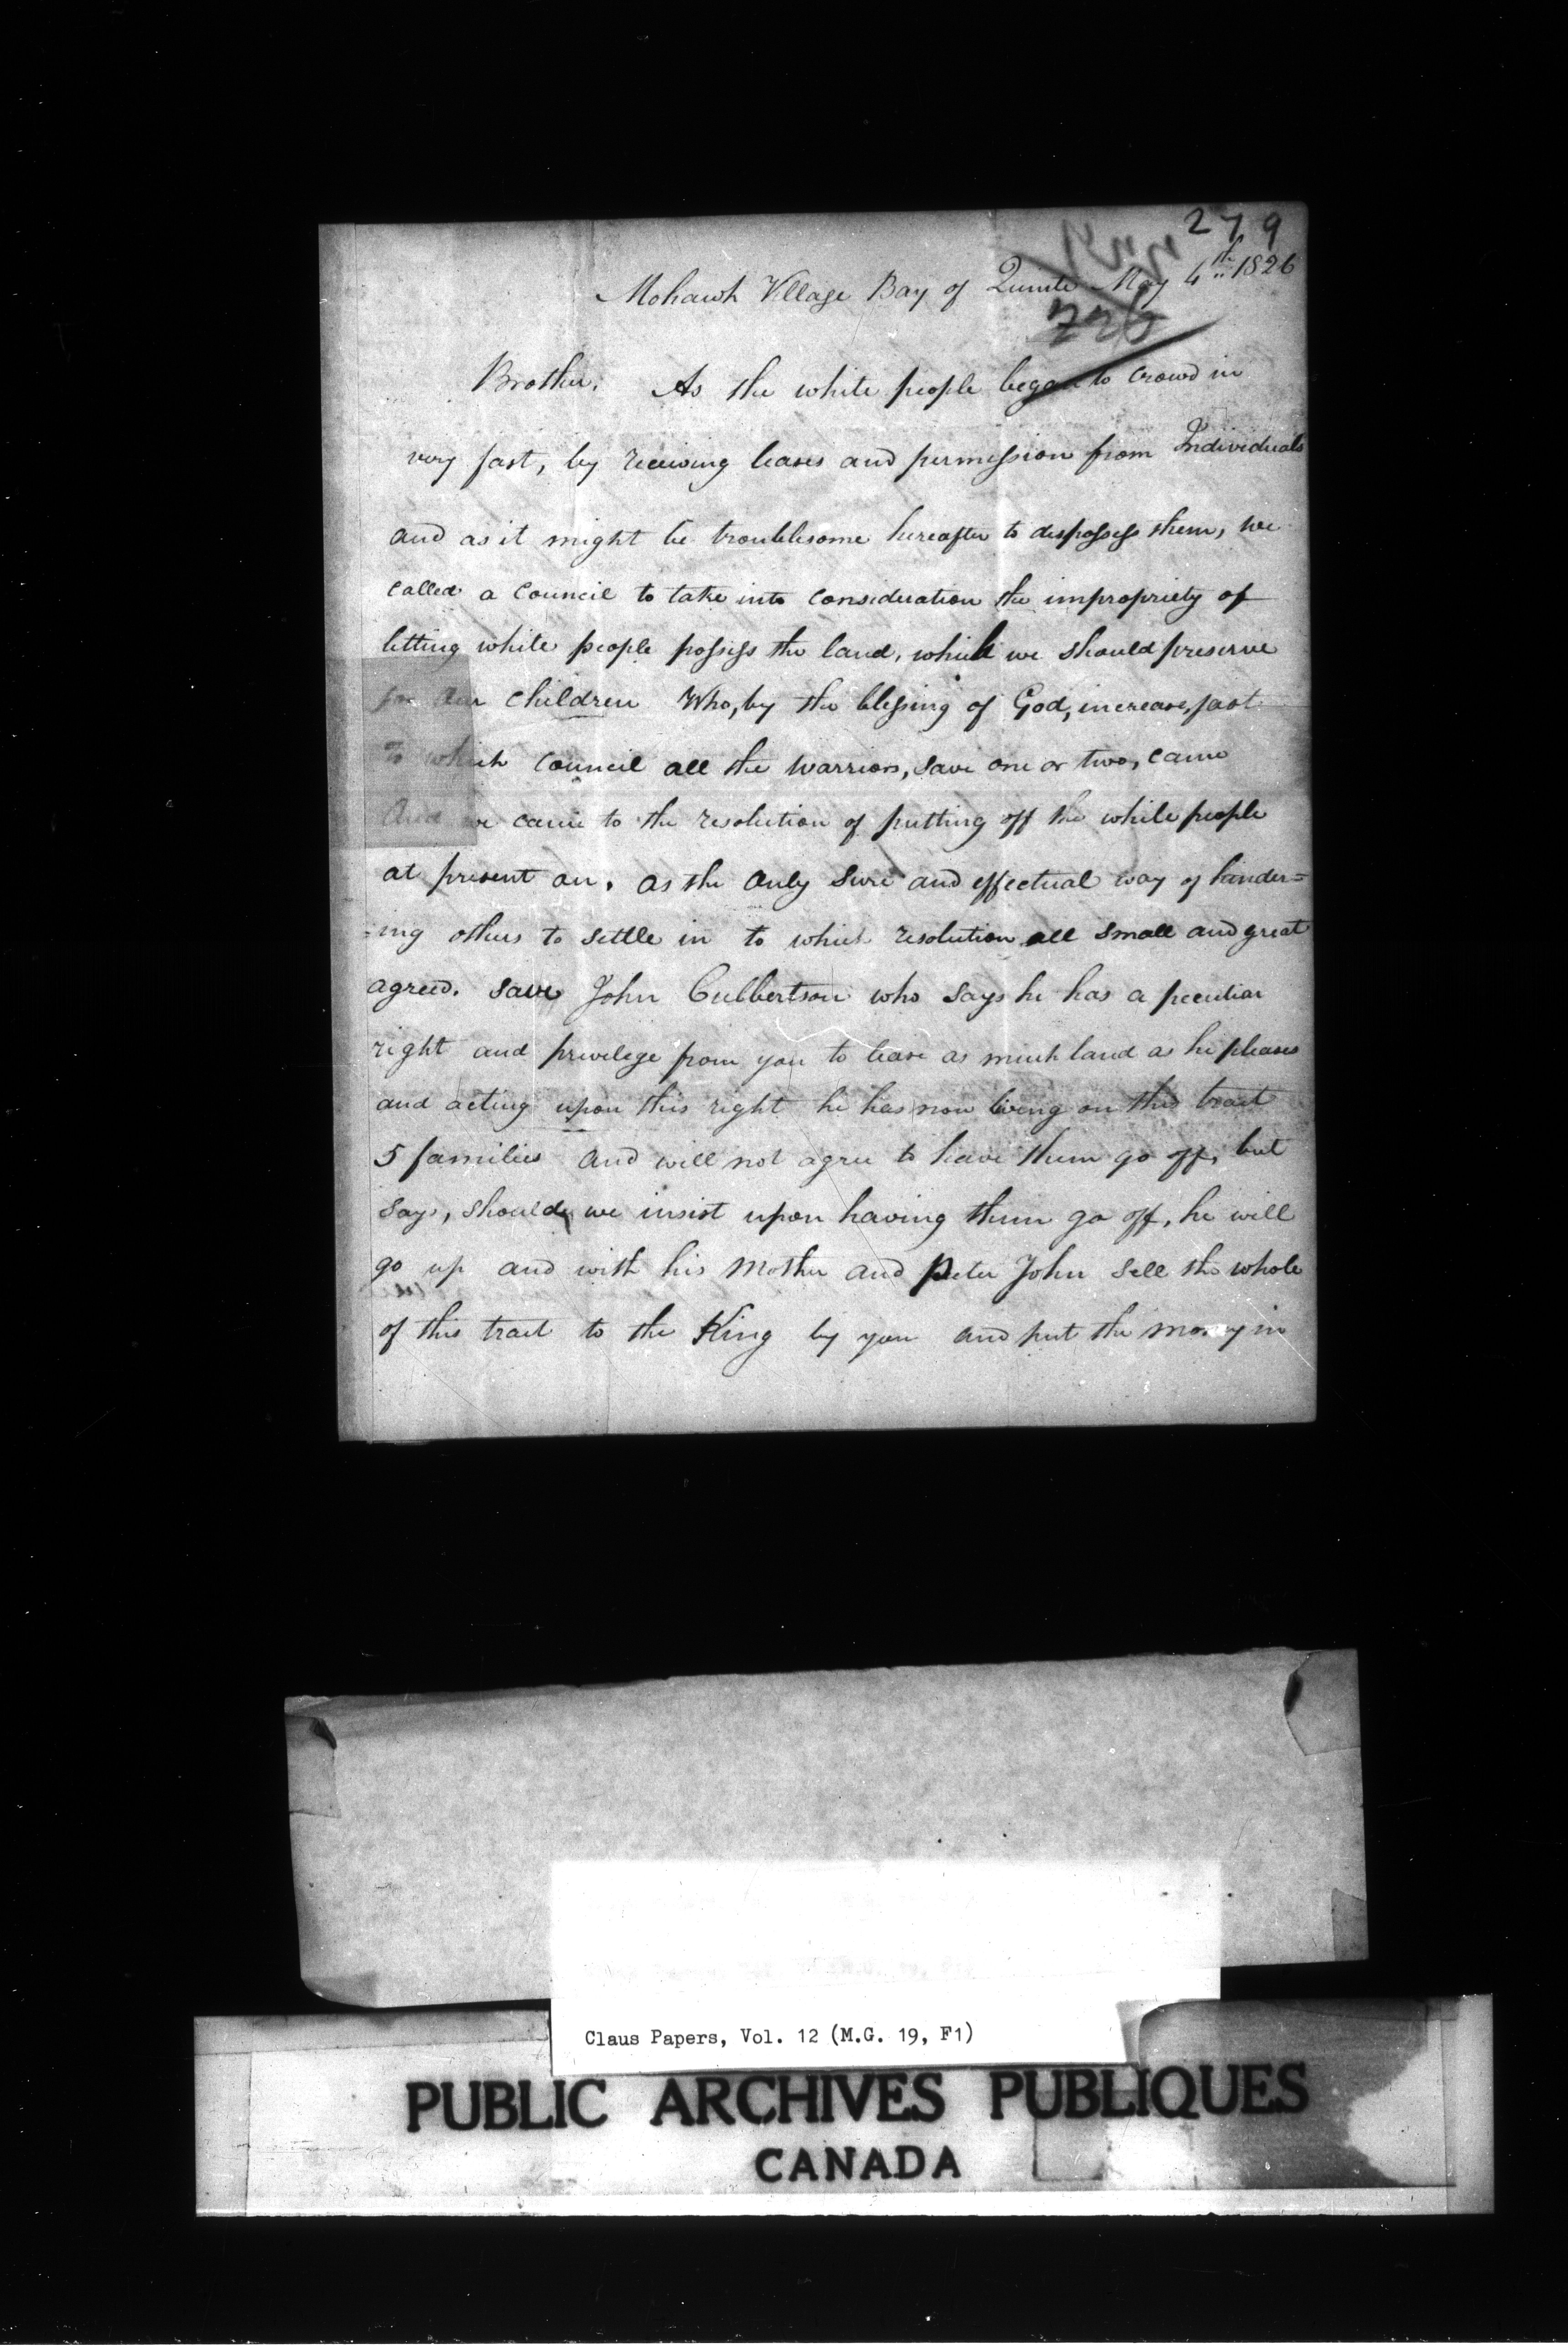 279
Mohawk Village Bay of Quinte May 4th 1826
226
Brother. As the white people began to crowd in
very fast, by receiving leases and permission from Individuals
and as it might be troublesome hereafter to dispossess them, we
called a Council to take into consideration the impropriety of
letting white people possess the land, which we should preserve
for our children Who, by the blessing of God, increase, fast
To which Council all the Warriors, save one or two, came
And we came to the resolution of putting off the white people
at present on. as the only sure and effectual way of hinder=
=ing others to settle in to which resolution all small and great
agreed. save John Culbertson who says he has a peculiar
right and privilege from you to lease as much land as he pleases
and acting upon this right he has now living on this tract
5 families and will not agree to have them go off, but
says, should we insist upon having them go off, he will
go up and with his Mother and Peter John sell the whole
of this tract to the King by you and put the money in
Claus Papers, Vol. 12 (M.G. 19, F1)
PUBLIC ARCHIVES PUBLIQUES
CANADA